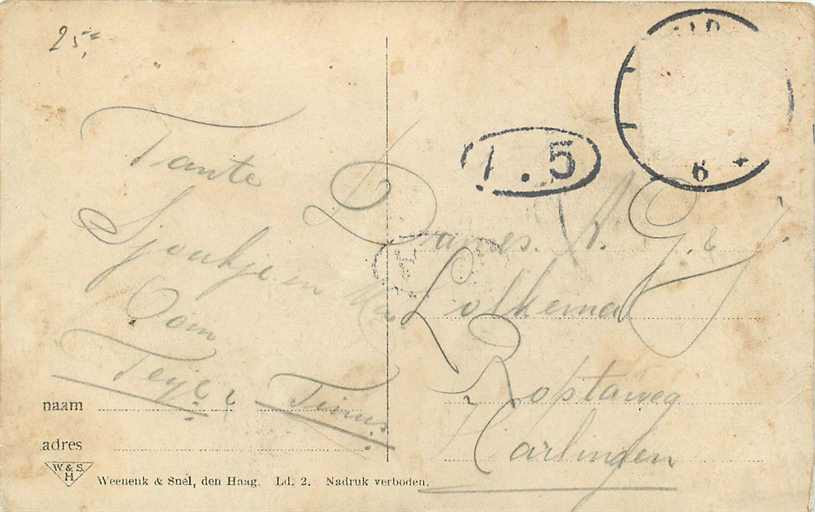 25,-
Tante
Sjoukje en
Oom
Teye & Tinus
Dames. A. G. & J.
Lolkema
Roptaweg
Harlingen
1.5
6
naam
adres
W. & S.
H.
Weenenk & Snel, den Haag. Ld. 2. Nadruk verboden.